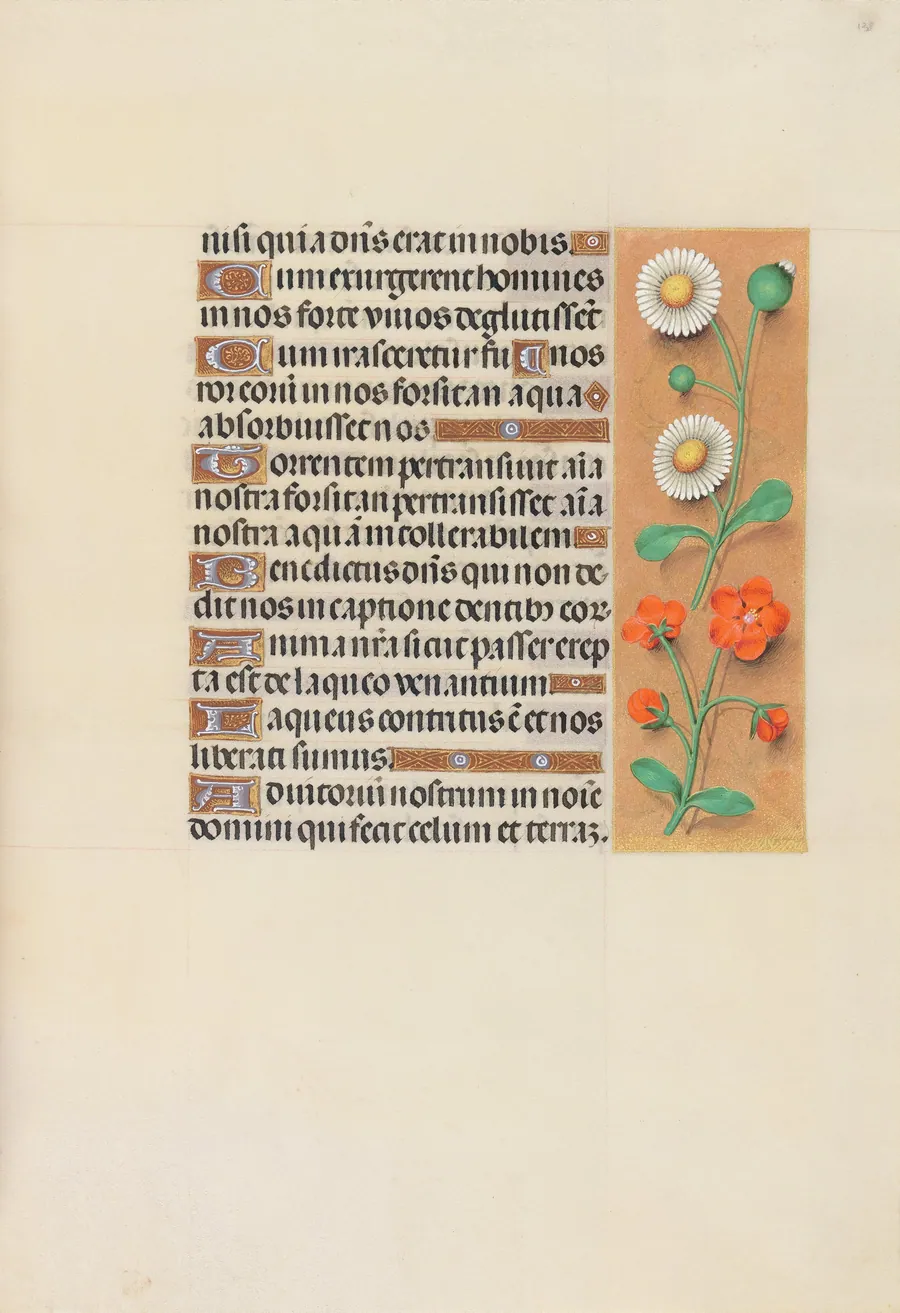 138
nisi quia dñs erat in nobis.
Cum exurgerent homines
in nos forte viuos deglutissēt
Cum irasceretur fu¶nos
ror eorū in nos forsitan aqua
absorbuisset nos
Torrentem pertransiuit aīa
nostra forsitan pertransisset aīa
nostra aquā intollerabilem
Benedictus dñs qui non de-
dit nos in captione dentibꝫ eor.
Anima nr̄a sicut passer erep
ta est de laqueo venantium
Laqueus contritus ē et nos
liberati sumus.
Adiutoriū nostrum in noīe
domini qui fecit celum et terraꝫ.